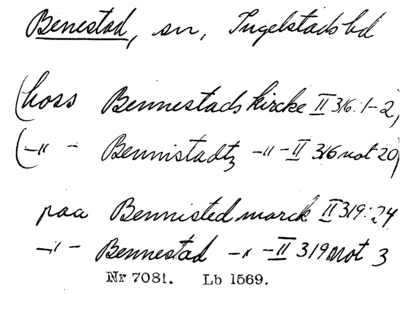 Benestad, sn, Ingelstads hd
(hoss Bennestads kircke II 316:1-2)
(-"- Bennistadtz -"- II 316 not 20)
paa Bennisted marck II 319:24
-"- Bennestad -"- II 319 not 3
Nr 7081. Lb 1569.